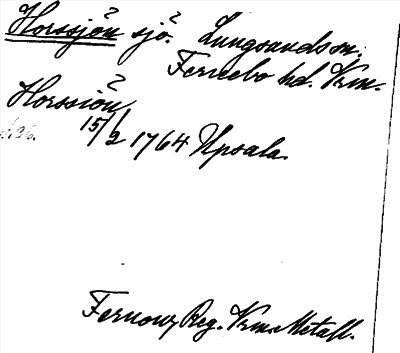 Horssjön? sjö? Lungsundssn.
Fernebo hd. Vrm.
Horssiön?
15/2 1764 Upsala.
Fernow, Reg. Vrm. Metall.